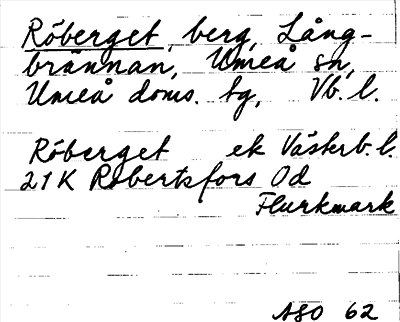 Röberget, berg, Lång-
brännan, Umeå sn,
Umeå doms. tg, Vb. l.
Röberget ek Västerb. l.
21K Robertsfors Od
Flurkmark
ASO 62